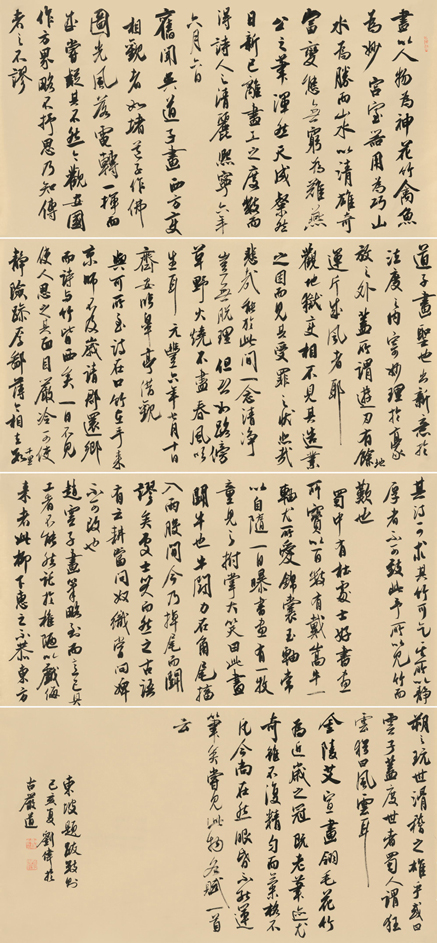 畫以人物為神花竹禽魚
為妙宮室器用為巧山
水為勝而山水以清雄奇
富變態無窮為難燕
公之筆渾然天成粲然
日新已離畫工之度數而
得詩人之清麗熙寧六年
六月六日
舊聞吳道子畫西方變
相觀者如堵道子作佛
圓光風落電轉一揮而
成嘗疑其不然今觀安國
作方界略不抒思乃知傳
者之不謬
道子畫聖也出新意於
法度之内寄妙理於豪
放之外蓋所謂遊刃有餘地
運斤成風者耶
觀地獄變相不見其造業
之因而見其受罪之狀悲哉
悲哉能於此間一念清淨
豈無脱理但恐如路傍
草野火燒不盡春風吹
生耳元豐六年七月十日
齋五時皋亭借觀
與可所至詩在口竹在手來
京師不及歲請郡還鄉
而詩與竹皆西矣一日不見
使人思之其面目嚴冷可使
靜險躁厚鄙薄今相去數千里
其詩可求其竹可乞其所以靜
厚者不可致此予所以見竹而
歎也
蜀中有杜處士好書畫
所寶以百數有戴嵩牛一
軸尤所愛錦囊玉軸常
以自隨一日曝書畫有一牧
童見之拊掌大笑曰此畫
鬥牛也牛鬥力在角尾搐
入兩股間今乃掉尾而鬥
謬矣處士笑而然之古語
有云耕當問奴織當問婢
不可改也
趙雲子畫筆略到而意已具
工者不能然託於椎陋以戲侮
來者此柳下惠之不恭東方
朔之玩世滑稽之雄乎或曰
雲子蓋度世者蜀人謂狂
雲猶曰風雲耳
金陵艾宣畫翎毛花竹
為近歲之冠既老筆迹尤
奇雖不復精勻而氣格不
凡今尚在然眼昏不能運
筆矣嘗見此物各賦一首
云
東坡題跋數則
己亥夏劉偉於
古嚴道